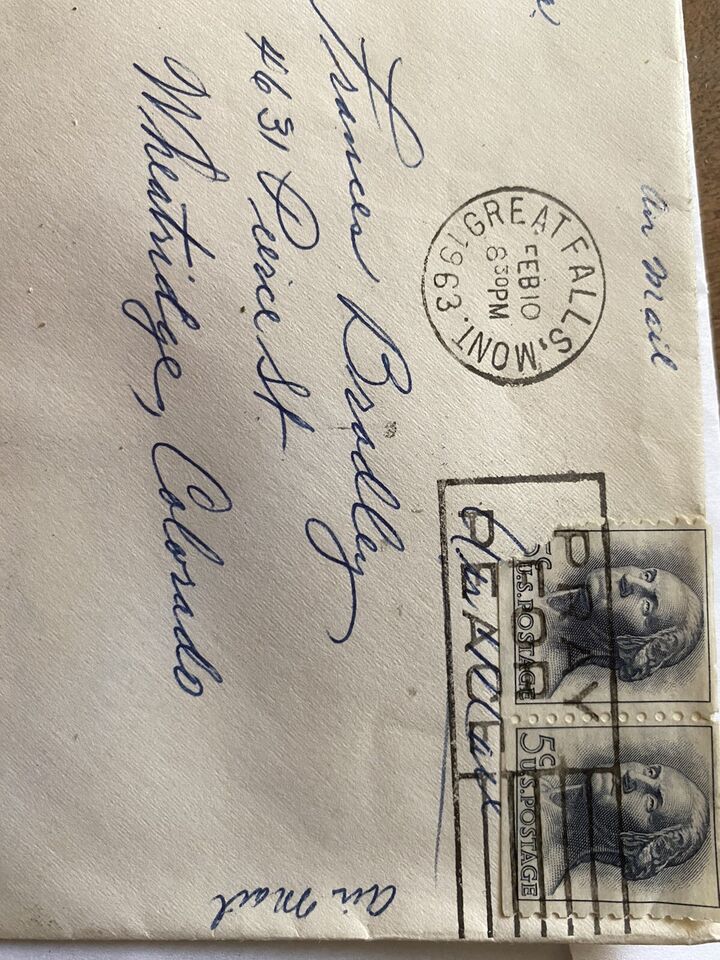 Air Mail
GREAT FALLS, MONT.
FEB 10
830PM
1963
PRAY
FOR
PEACE
5c U.S.POSTAGE
5c U.S.POSTAGE
Air Mail
Frances Bradley
4631 Pierce St
Wheatridge, Colorado
Air Mail